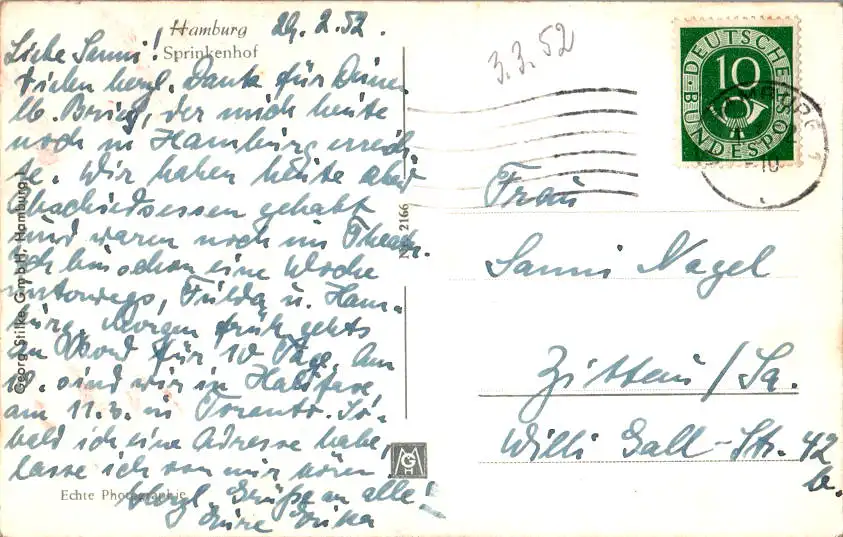 Hamburg
Sprinkenhof
29.2.52.
Liebe Sanni!
Vielen herzl. Dank für Deinen
lb. Brief, der mich heute
noch in Hamburg erreich-
te. Wir haben heute abend
Abschiedsessen gehabt
und waren noch im Theater.
Ich bin schon eine Woche
unterwegs, Fulda u. Ham-
burg. Morgen früh gehts
an Bord für 10 Tage. Am
10. sind wir in Halifax
am 11.3. in Toronto. So-
bald ich eine Adresse habe,
lasse ich von mir hören.
Herzl. Grüße an alle!
Eure Erika
Echte Photographie
Georg Stilke, G.m.b.H., Hamburg 1
Nr. 2166
3.3.52
DEUTSCHE
BUNDESPOST
10
Frau
Sanni Nagel
Zittau/Sa.
Willi Gall-Str. 42
b.